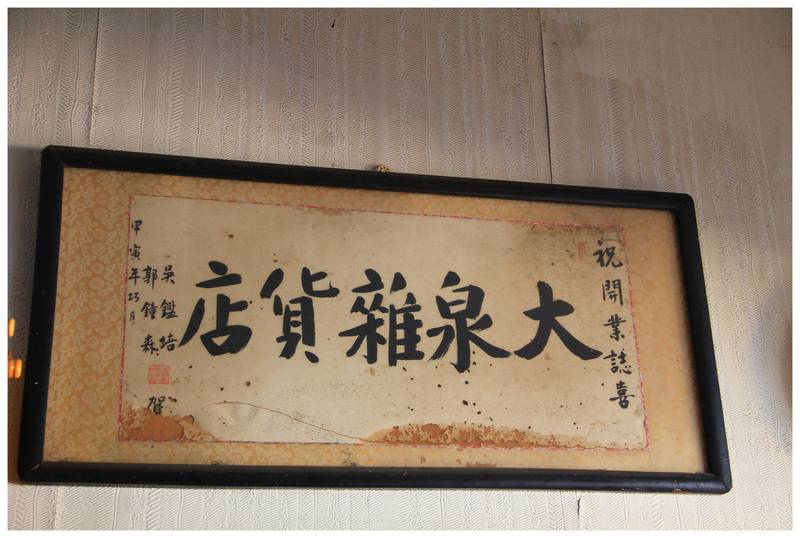 祝開業誌喜
大泉雜貨店
吳鑑培
郭鐘森
賀
甲寅年巧月